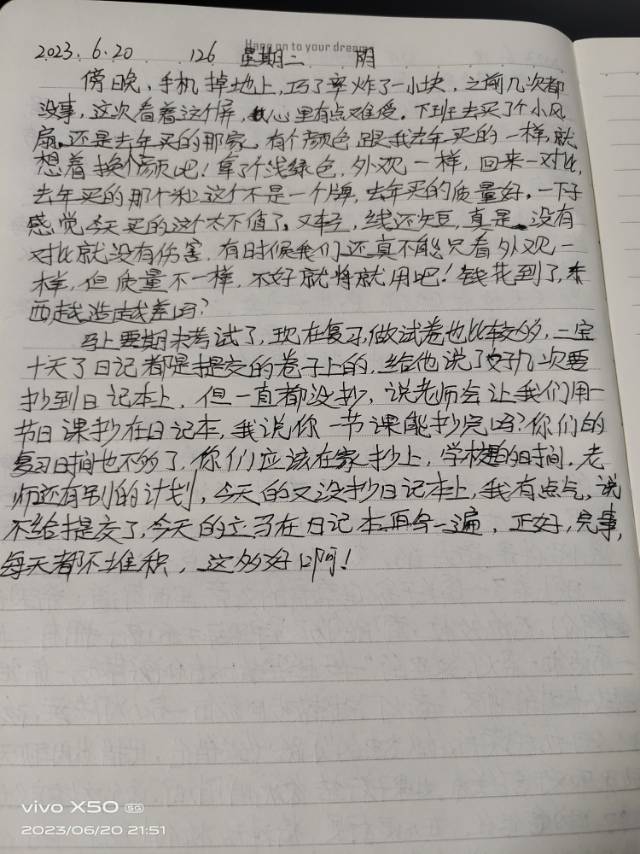 Hang on to your dream
2023.6.20 126 星期二 阴
傍晚,手机掉地上,巧了率炸了一小块,之前几次都
没事,这次看着这个屏,心里有点难受。下班去买了个小风
扇。还是去年买的那家,有个颜色跟我去年买的一样,就
想着换个颜吧!拿了个浅绿色,外观一样,回来一对比,
去年买的那个和这个不是一个牌,去年买的质量好。一下子
感觉今天买的这个太不值了。又轻,线还短,真是没有
对比就没有伤害,有时候我们还真不能只看外观一
样,但质量不一样,不好就将就用吧!钱花到了,东
西越造越差吗?
马上要期末考试了,现在复习,做试卷也比较多,二宝
十天了日记都是提交的卷子上的,给他说了好几次要
抄到日记本上,但一直都没抄,说老师会让我们用一
节日课抄在日记本,我说你一节课能抄完吗?你们的
复习时间也不够了,你们应该在家抄上,学校的时间,老
师还有别的计划,今天的又没抄日记本上,我有点气,说
不给提交了,今天的立马在日记本再写一遍,正好,完事,
每天都不堆积,这多好啊!
vivo X50 5G
2023/06/20 21:51